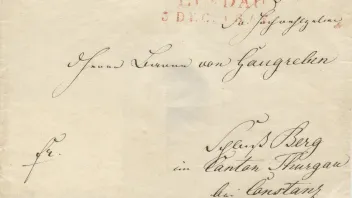 LINDAU
5 DEC.
Sr. Hochwohlgeboren
Herrn Baron von Gaugreben
fr.
Schloß Berg
im Canton Thurgau
bei Constanz